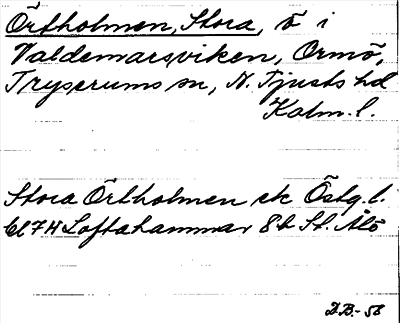 Örtholmen, Stora, ö i
Valdemarsviken, Ormö,
Tryserums sn, N. Tjusts hd
Kalm. l.
Stora Örtholmen ek Östg. l.
bl 7H Loftahammar 8b St. Ålö
D.B.-58